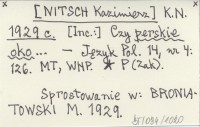 [NITSCH Kazimierz] K.N.
1929 c. [Inc.:] Czy perskie
oko... - Język Pol. 14, nr 4:
126. MT, WNP. * P (Zak).
Sprostowanie w: BRONIA-
TOWSKI M. 1929.
BJ/084/1020